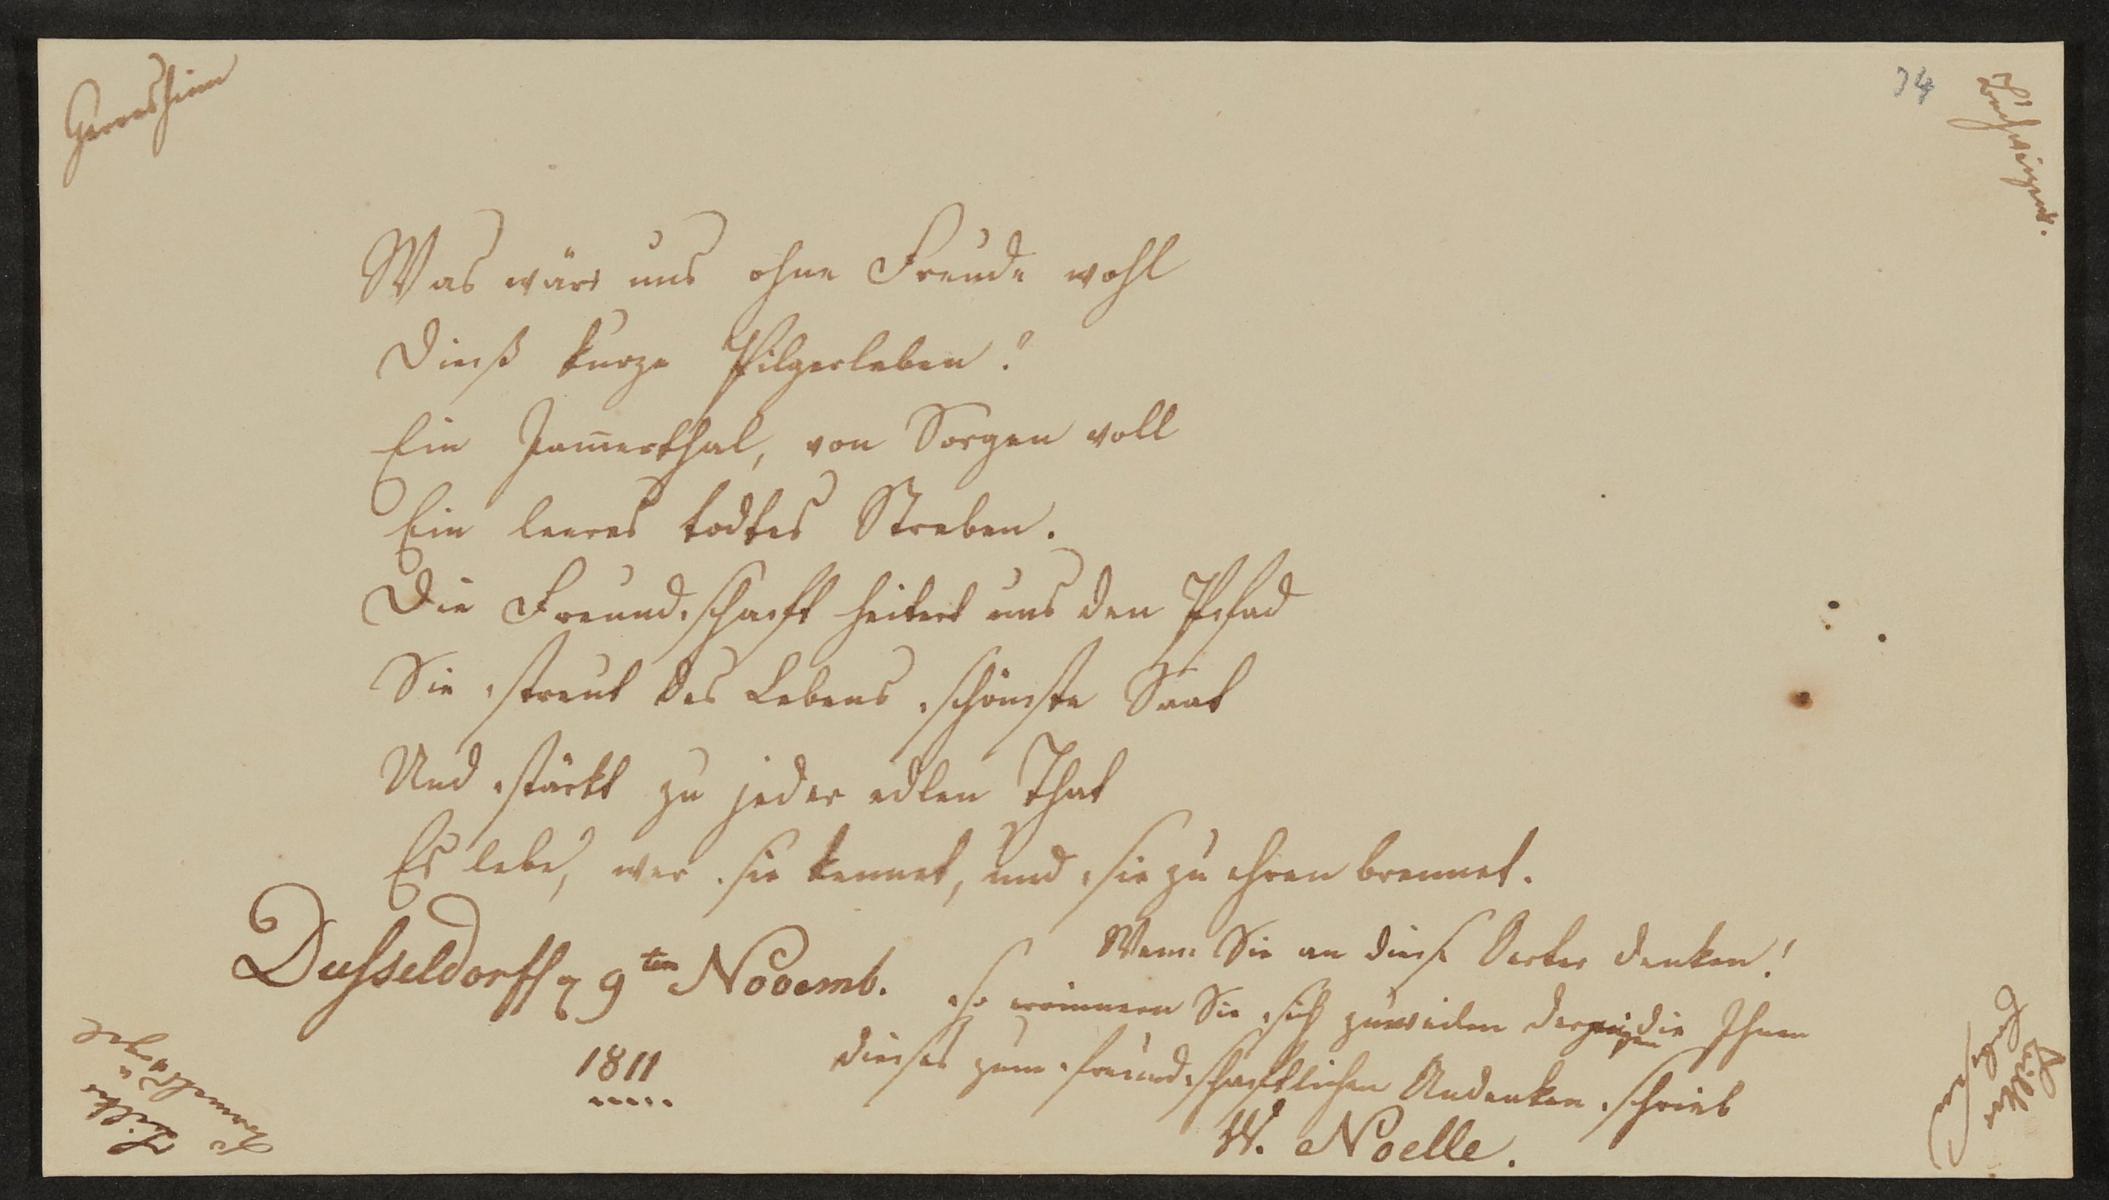 Gerresheim
34
Was wäre uns ohne Freude wohl
Dieß kurze Pilgerleben?
Ein Jam̅erthal, von Sorgen voll
Ein leeres todtes Streben.
Die Freundschafft heitert uns den Pfad
Sie streut des Lebens schönste Saat
Und stärkt zu jeder edlen That
Es lebe, wer sie kennet, und sie zu ehren brennet.
Dusseldorff 9ten Novemb.
1811
Wenn Sie an diese Oerter denken!
so erinnern Sie sich zuweilen derjenigen die Ihnen
dieses zum freundschafftlichen Andenken schrieb
W. Noelle.